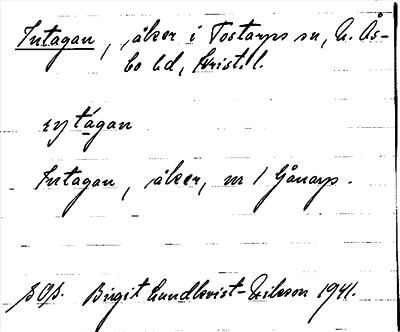 Intagan, åker i Tostarps sn, N. Ås-
bo hd, Krist. l.
intagan
Intagan, åker, nr 1 Gånarp.
Birgit Lundkvist-Eriksson 1941.